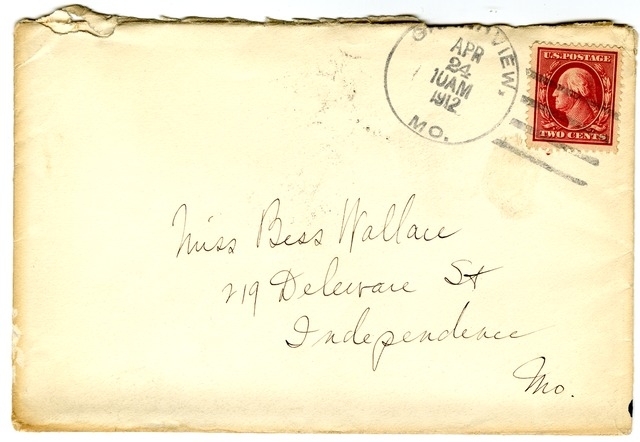 GRANDVIEW,
APR
24
10AM
1912
MO.
U.S. POSTAGE
TWO CENTS
Miss Bess Wallace
219 Deleware St
Independence
Mo.